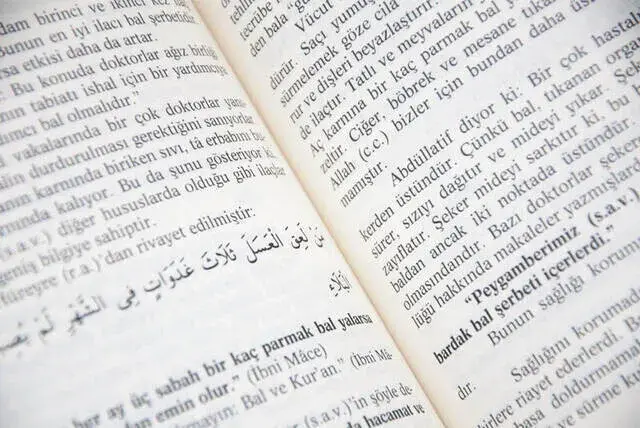 dam birinci ve ikinci kez
Bunun en iyi ilacı bal şerbetidir.
etkisi daha da artar.
Bu konuda doktorlar ağız birliği
nun tabiatı ishal için bir yardımcıya
bal olmalıdır."
vakalarında bir çok doktorlar yanı-
durdurulması gerektiğini sanıyorlar.
nın karnında biriken sıvı, tâ erbabını bu-
nında kalıyor. Bu da şunu gösteriyor ki,
(s.a.v.) diğer hususlarda olduğu gibi ilaçlar
geniş bilgiye sahiptir.
(r.a.)'dan rivayet edilmiştir:
مَنْ لَعِقَ الْعَسَلَ ثَلَاثَ غَدَوَاتٍ فِي الشَّهْرِ لَمْ
الْبَلَاءِ
her ay üç sabah bir kaç parmak bal yalarsa
dan emin olur." (İbni Mâce)
Bal ve Kur'an." (İbni Mâ-
(s.a.v.)'in şöyle de-
da hacamat ve
tecrübe
den bala
Vücut
dürür. Saçı yumuş
sürmelemek göze cila
rur ve dişleri beyazlaştırır.
de ilaçtır. Tatlı ve meyvaların
Aç karnına bir kaç parmak bal y
zeltir. Ciğer, böbrek ve mesane tıkan
Allah (c.c.) bizler için bundan daha üs
mamıştır.
Abdüllatif diyor ki: Bir çok hasta
kerden üstündür. Çünkü bal, tıkanan orga
sürer, sızıyı dağıtır ve mideyi yıkar. Şeke
zayıflatır. Şeker mideyi sarkıtır ki, bu
baldan ancak iki noktada üstündür.
olmasındandır. Bazı doktorlar şeker
lüğü hakkında makaleler yazmışlar
"Peygamberimiz (s.a.v.)
bardak bal şerbeti içerlerdi."
Bunun sağlığı korum
dır.
Sağlığını koruma
riayet ederlerdi. B
basa doldurmama
ve sürme k